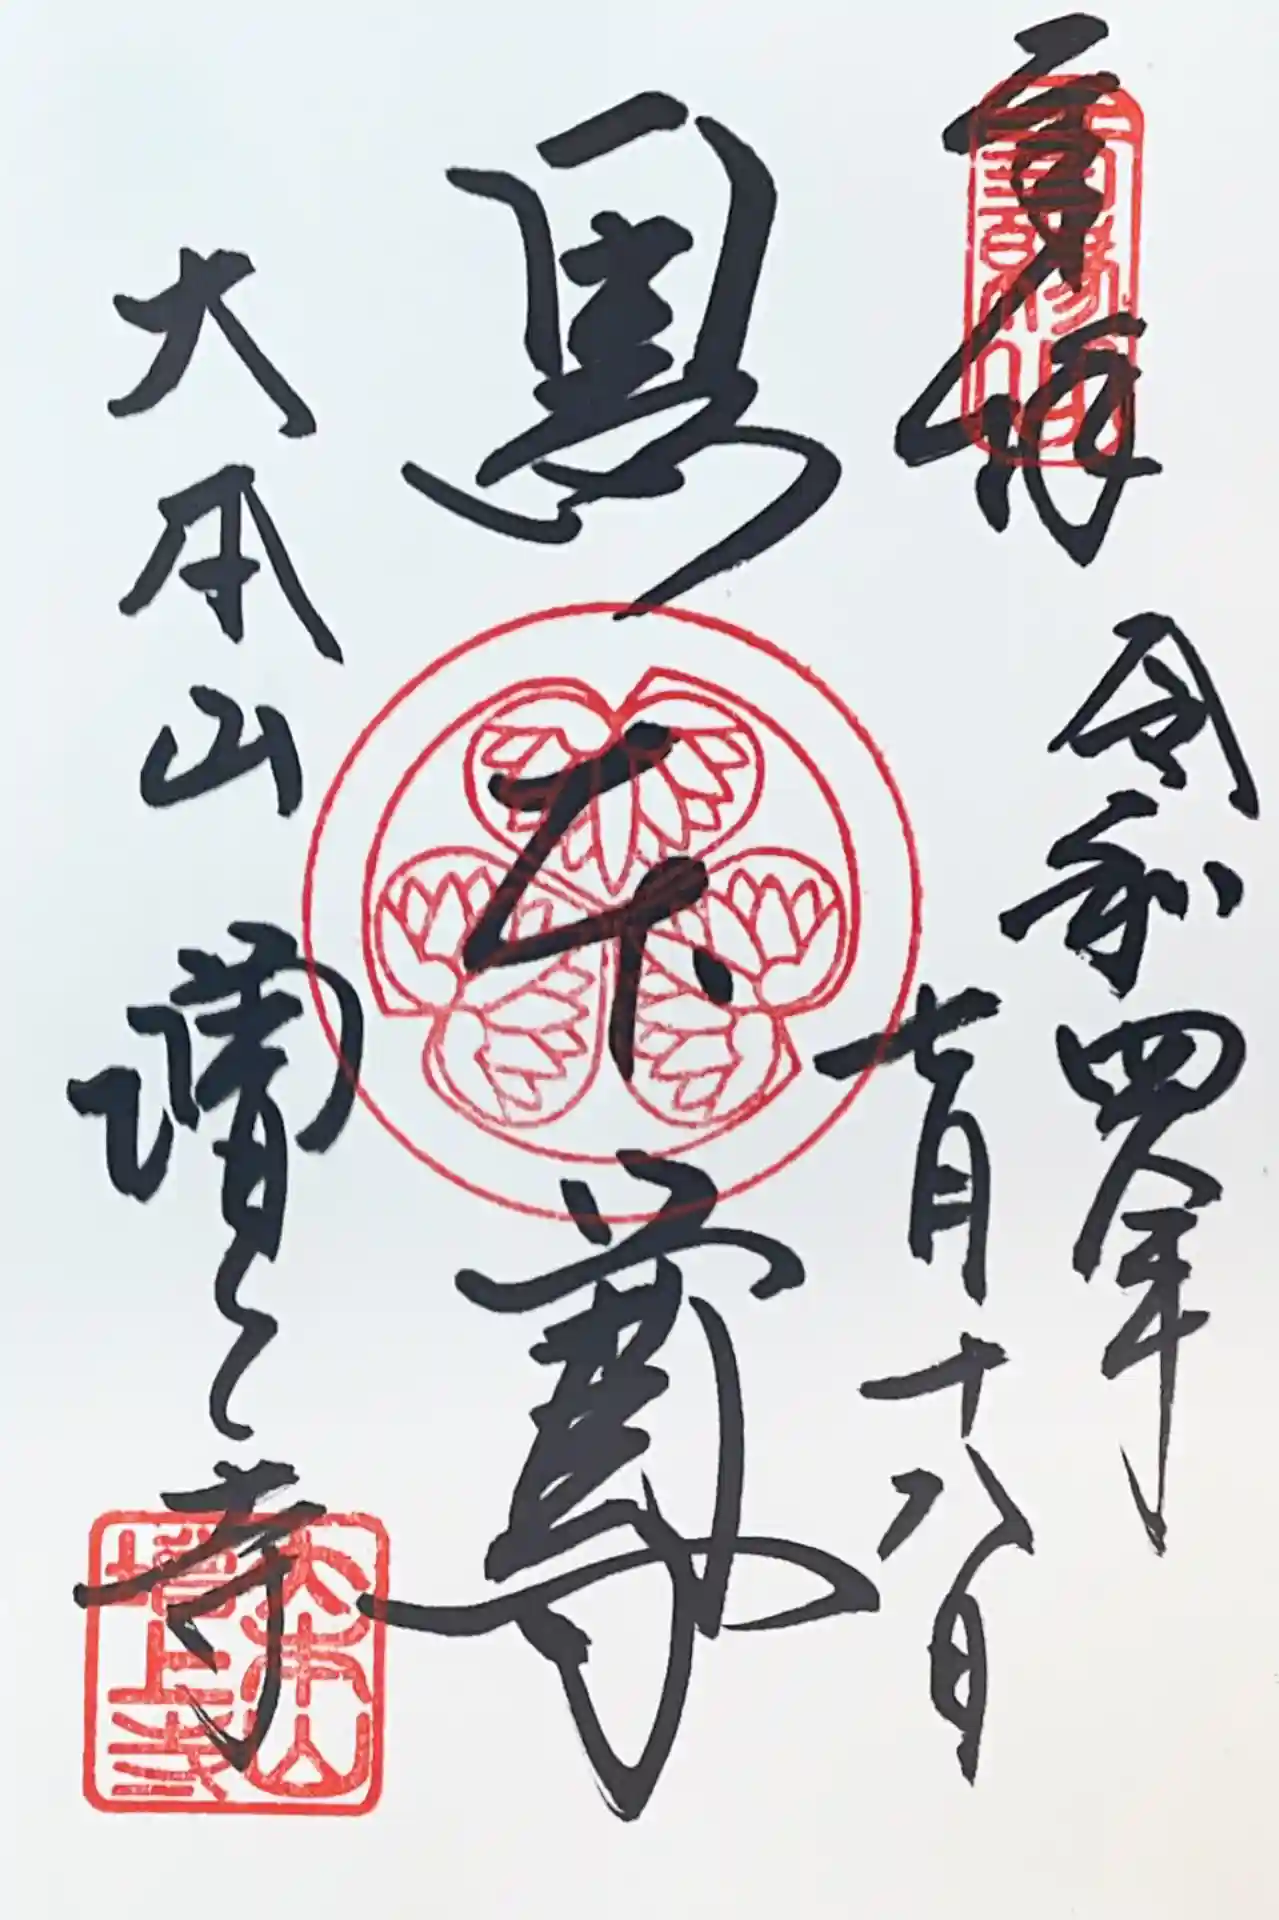 奉拝
令和四年
十月十八日
黒本尊
大本山
増上寺
大本山
増上寺